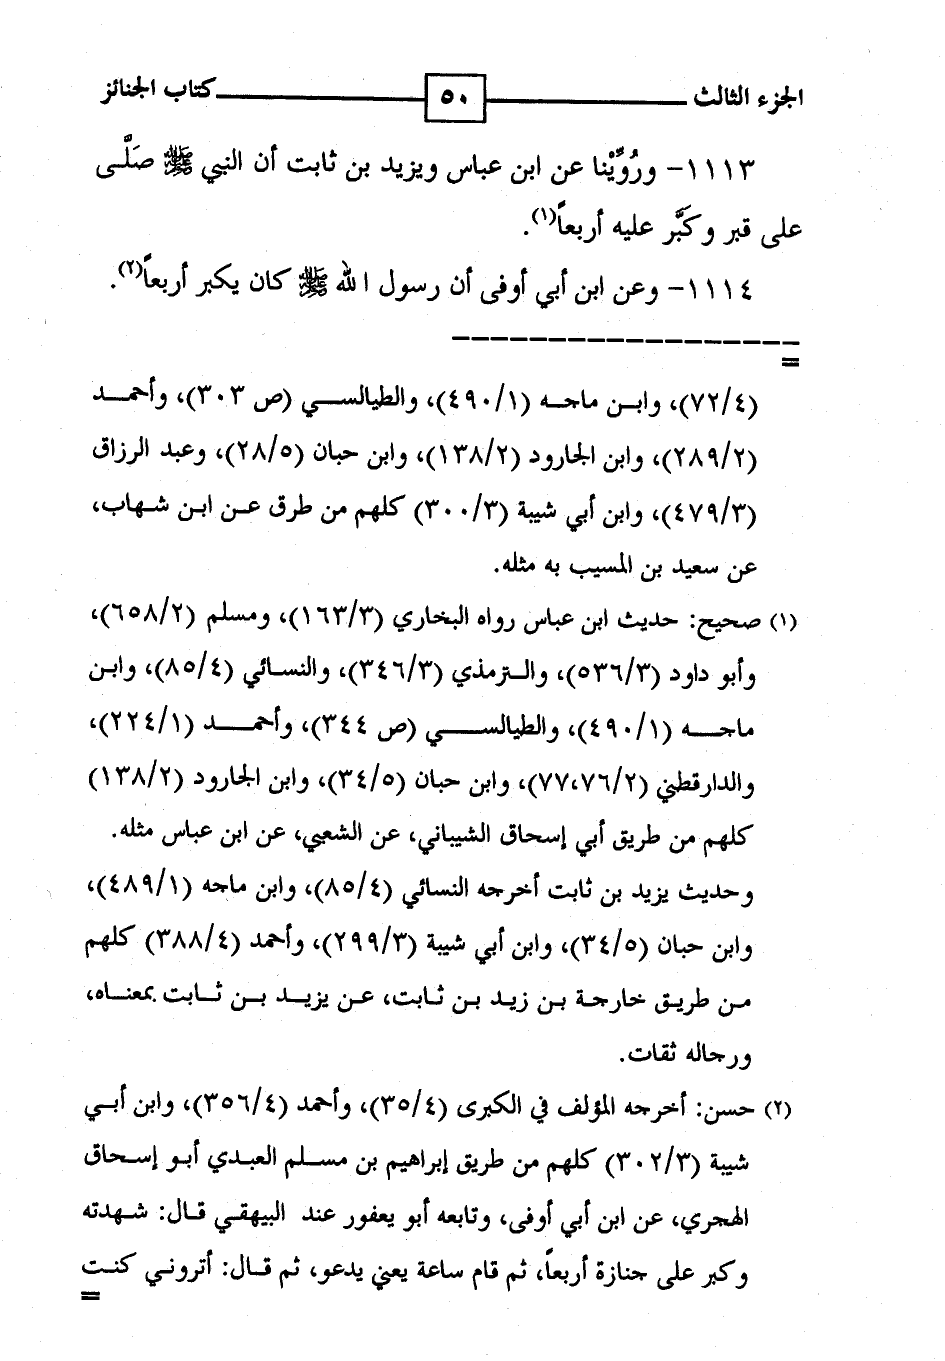 الجزء الثالث ٥٠ كتاب الجنائز
١١١٣- ورُوِّيْنا عن ابن عباس ويزيد بن ثابت أن النبي ﷺ صَلَّى
على قبر وكَبَّر عليه أربعاً(١).
١١١٤- وعن ابن أبي أوفى أن رسول الله ﷺ كان يكبر أربعاً(٢).
=
(٧٢/٤)، وابن ماجه (٤٩٠/١)، والطيالسي (ص ٣٠٣)، وأحمد
(٢٨٩/٢)، وابن الجارود (١٣٨/٢)، وابن حبان (٢٨/٥)، وعبد الرزاق
(٤٧٩/٣)، وابن أبي شيبة (٣٠٠/٣) كلهم من طرق عن ابن شهاب،
عن سعيد بن المسيب به مثله.
(١) صحيح: حديث ابن عباس رواه البخاري (١٦٣/٣)، ومسلم (٦٥٨/٢)،
وأبو داود (٥٣٦/٣)، والترمذي (٣٤٦/٣)، والنسائي (٨٥/٤)، وابن
ماجه (٤٩٠/١)، والطيالسي (ص ٣٤٤)، وأحمد (٢٢٤/١)،
والدارقطني (٧٧،٧٦/٢)، وابن حبان (٣٤/٥)، وابن الجارود (١٣٨/٢)
كلهم من طريق أبي إسحاق الشيباني، عن الشعبي، عن ابن عباس مثله.
وحديث يزيد بن ثابت أخرجه النسائي (٨٥/٤)، وابن ماجه (٤٨٩/١)،
وابن حبان (٣٤/٥)، وابن أبي شيبة (٢٩٩/٣)، وأحمد (٣٨٨/٤) كلهم
من طريق خارجة بن زيد بن ثابت، عن يزيد بن ثابت بمعناه،
ورجاله ثقات.
(٢) حسن: أخرجه المؤلف في الكبرى (٣٥/٤)، وأحمد (٣٥٦/٤)، وابن أبي
شيبة (٣٠٢/٣) كلهم من طريق إبراهيم بن مسلم العبدي أبو إسحاق
الهجري، عن ابن أبي أوفى، وتابعه أبو يعفور عند البيهقي قال: شهدته
وكبر على جنازة أربعاً، ثم قام ساعة يعني يدعو، ثم قال: أتروني كنت
=